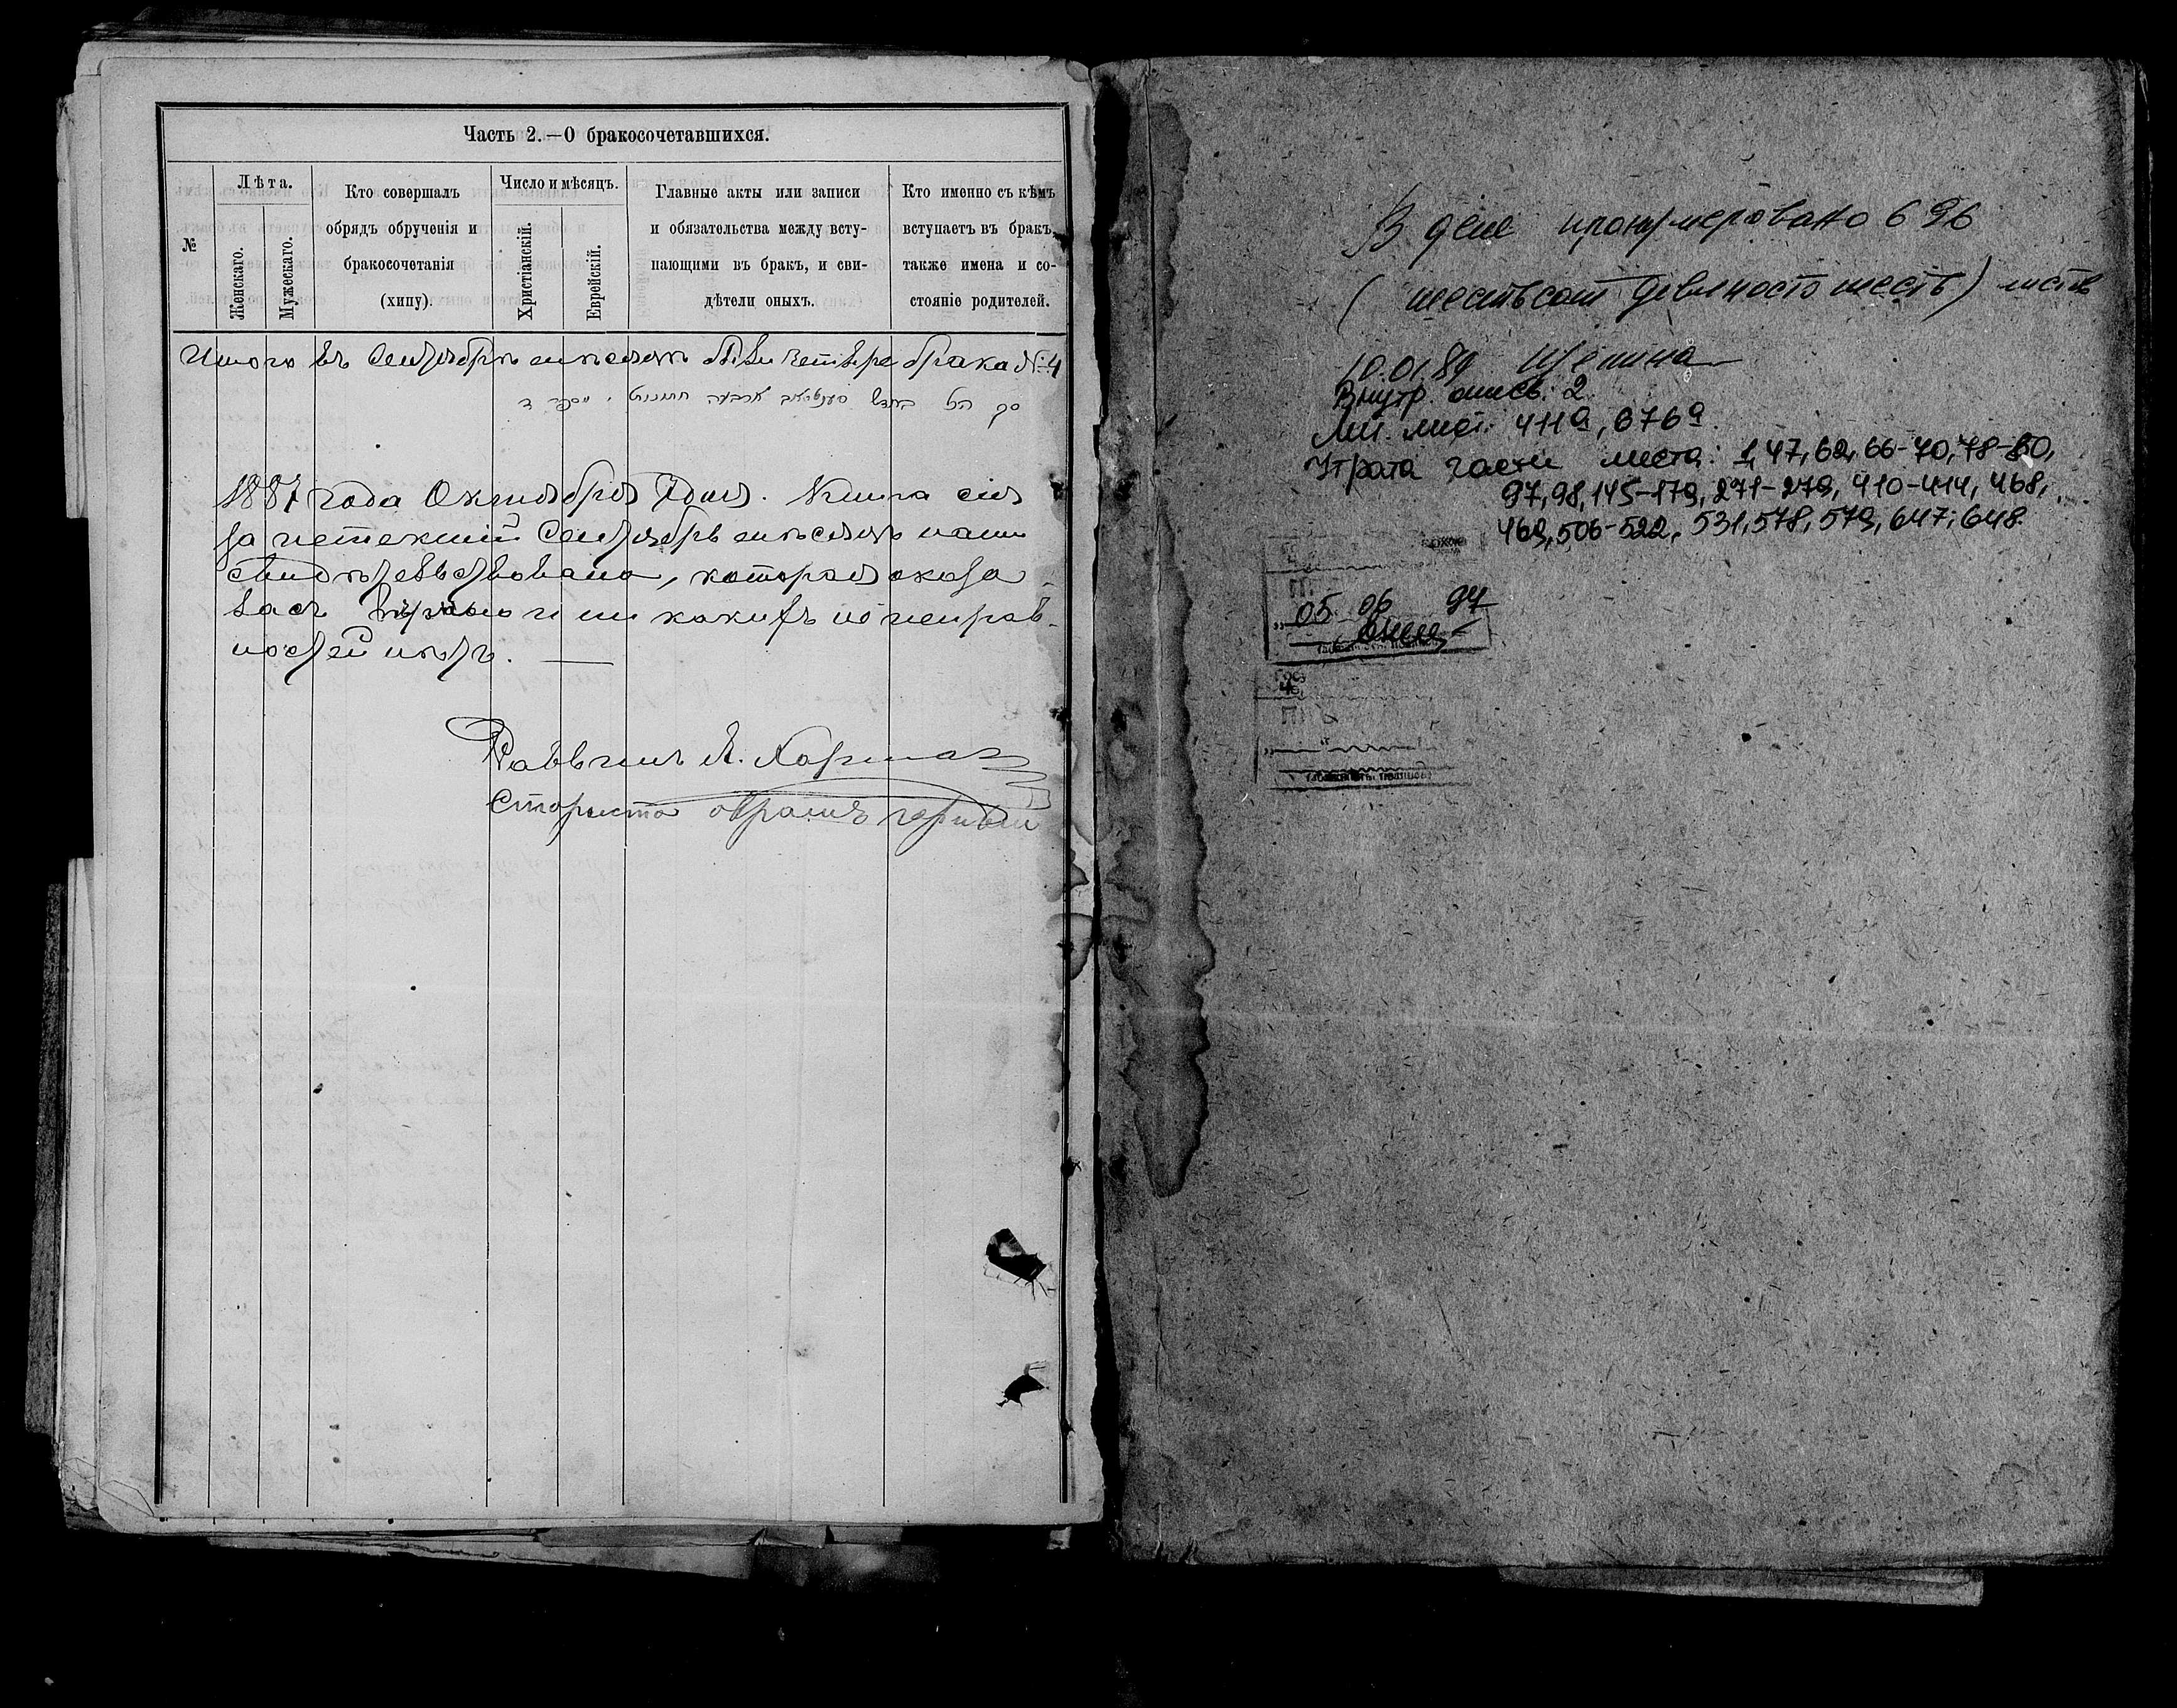 Часть 2.—О бракосочетавшихся.
№
Лѣта.
Женскаго.
Мужескаго.
Кто совершалъ
обрядъ обрученія и
бракосочетанія
(хипу).
Число и мѣсяцъ.
Христіанскій.
Еврейскій.
Главные акты или записи
и обязательства между всту-
пающими въ бракъ, и сви-
дѣтели оныхъ.
Кто именно съ кѣмъ
вступаетъ въ бракъ,
также имена и со-
стояніе родителей.
Итого въ Сентябрѣ мѣсяцѣ четыре брака № 4
סך הכל
1887 года Октября дня. Книга сія
за истекшій Сентябрь мѣсяцъ нами
свидѣтельствована, которая оказа-
лась и ни какихъ неисправ-
ностей нѣтъ.
Раввинъ
Староста
В деле пронумеровано 696
(шестьсот девяносто шесть) листов
10.01.89
Внутр. опись: 2
Лит. лист: 411а, 676а.
Утрата части листа: 1, 47, 62, 66-70, 78-80,
97, 98, 145-179, 271-279, 410-414, 468,
469, 506-522, 531, 578, 579, 647, 648.
05 06 94